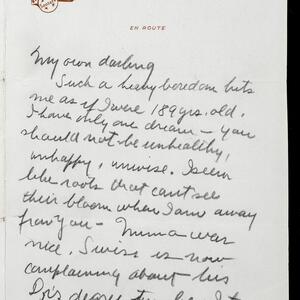 EN ROUTE
My own darling
Such a heavy boredom hits
me as if I were 189 yrs. old.
I have only one dream – you
should not be unhealthy,
unhappy, unwise. I seem
like roots that can't see
their bloom when I am away
from you – Mima was
nice, Swiss is now
complaining about his